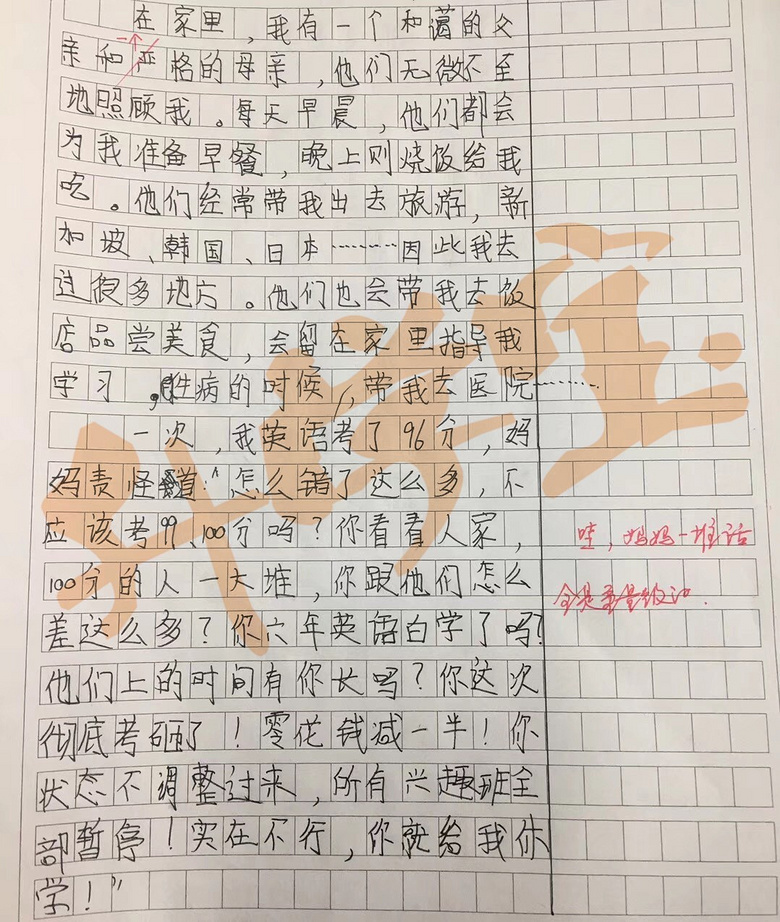 在家里，我有一个和蔼的父
亲和严格的母亲，他们无微不至
地照顾我。每天早晨，他们都会
为我准备早餐，晚上则烧饭给我
吃。他们经常带我出去旅游，新
加坡、韩国、日本………因此我去
过很多地方。他们也会带我去饭
店品尝美食，会留在家里指导我
学习，生病的时候，带我去医院………
一次，我英语考了96分，妈
妈责怪道："怎么错了这么多，不
应该考99、100分吗？你看看人家，
哇，妈妈一堆话
100分的人一大堆，你跟他们怎么
全是重量级
差这么多？你六年英语白学了吗？
他们上的时间有你长吗？你这次
彻底考砸了！零花钱减一半！你
状态不调整过来，所有兴趣班全
部暂停！实在不行，你就给我休
学！"
升学宝